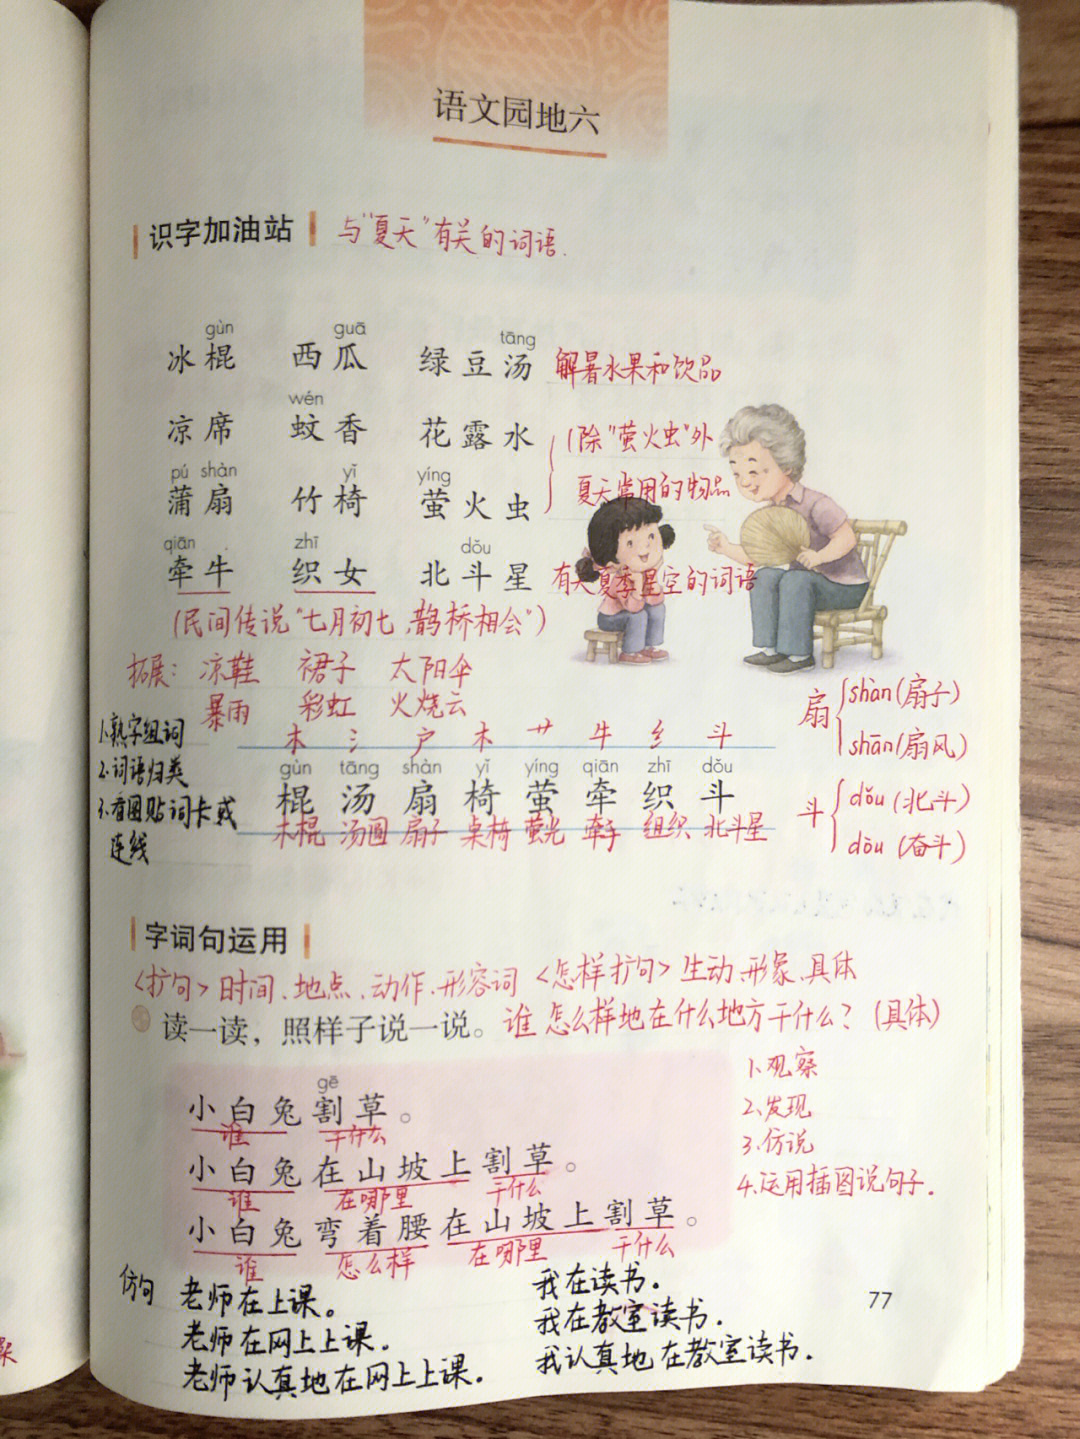 语文园地六
识字加油站 与"夏天"有关的词语.
gùn guā tāng
冰棍 西瓜 绿豆汤 解暑水果和饮品
wén
凉席 蚊香 花露水 (除"萤火虫"外
pú shàn yǐ yíng
蒲扇 竹椅 萤火虫 夏天常用的物品
qiān zhī dǒu
牵牛 织女 北斗星 有关夏季星空的词语
(民间传说"七月初七,鹊桥相会")
拓展: 凉鞋 裙子 太阳伞
暴雨 彩虹 火烧云
扇 shàn(扇子)
shān(扇风)
1.熟字组词
2.词语归类
3.看图贴词卡或
连线
木 氵 户 木 艹 牛 纟 斗
gùn tāng shàn yǐ yíng qiān zhī dǒu
棍 汤 扇 椅 萤 牵 织 斗
木棍 汤圆 扇子 桌椅 萤光 牵手 组织 北斗星
斗 dǒu(北斗)
dòu(奋斗)
字词句运用
<扩句>时间、地点、动作、形容词 <怎样扩句>生动、形象、具体
读一读，照样子说一说。 谁 怎么样地在什么地方干什么?(具体)
gē
小白兔割草。
谁 干什么
小白兔在山坡上割草。
谁 在哪里 干什么
小白兔弯着腰在山坡上割草。
谁 怎么样 在哪里 干什么
1.观察
2.发现
3.仿说
4.运用插图说句子.
仿句 老师在上课。
老师在网上上课.
老师认真地在网上上课.
我在读书.
我在教室读书.
我认真地在教室读书.
77